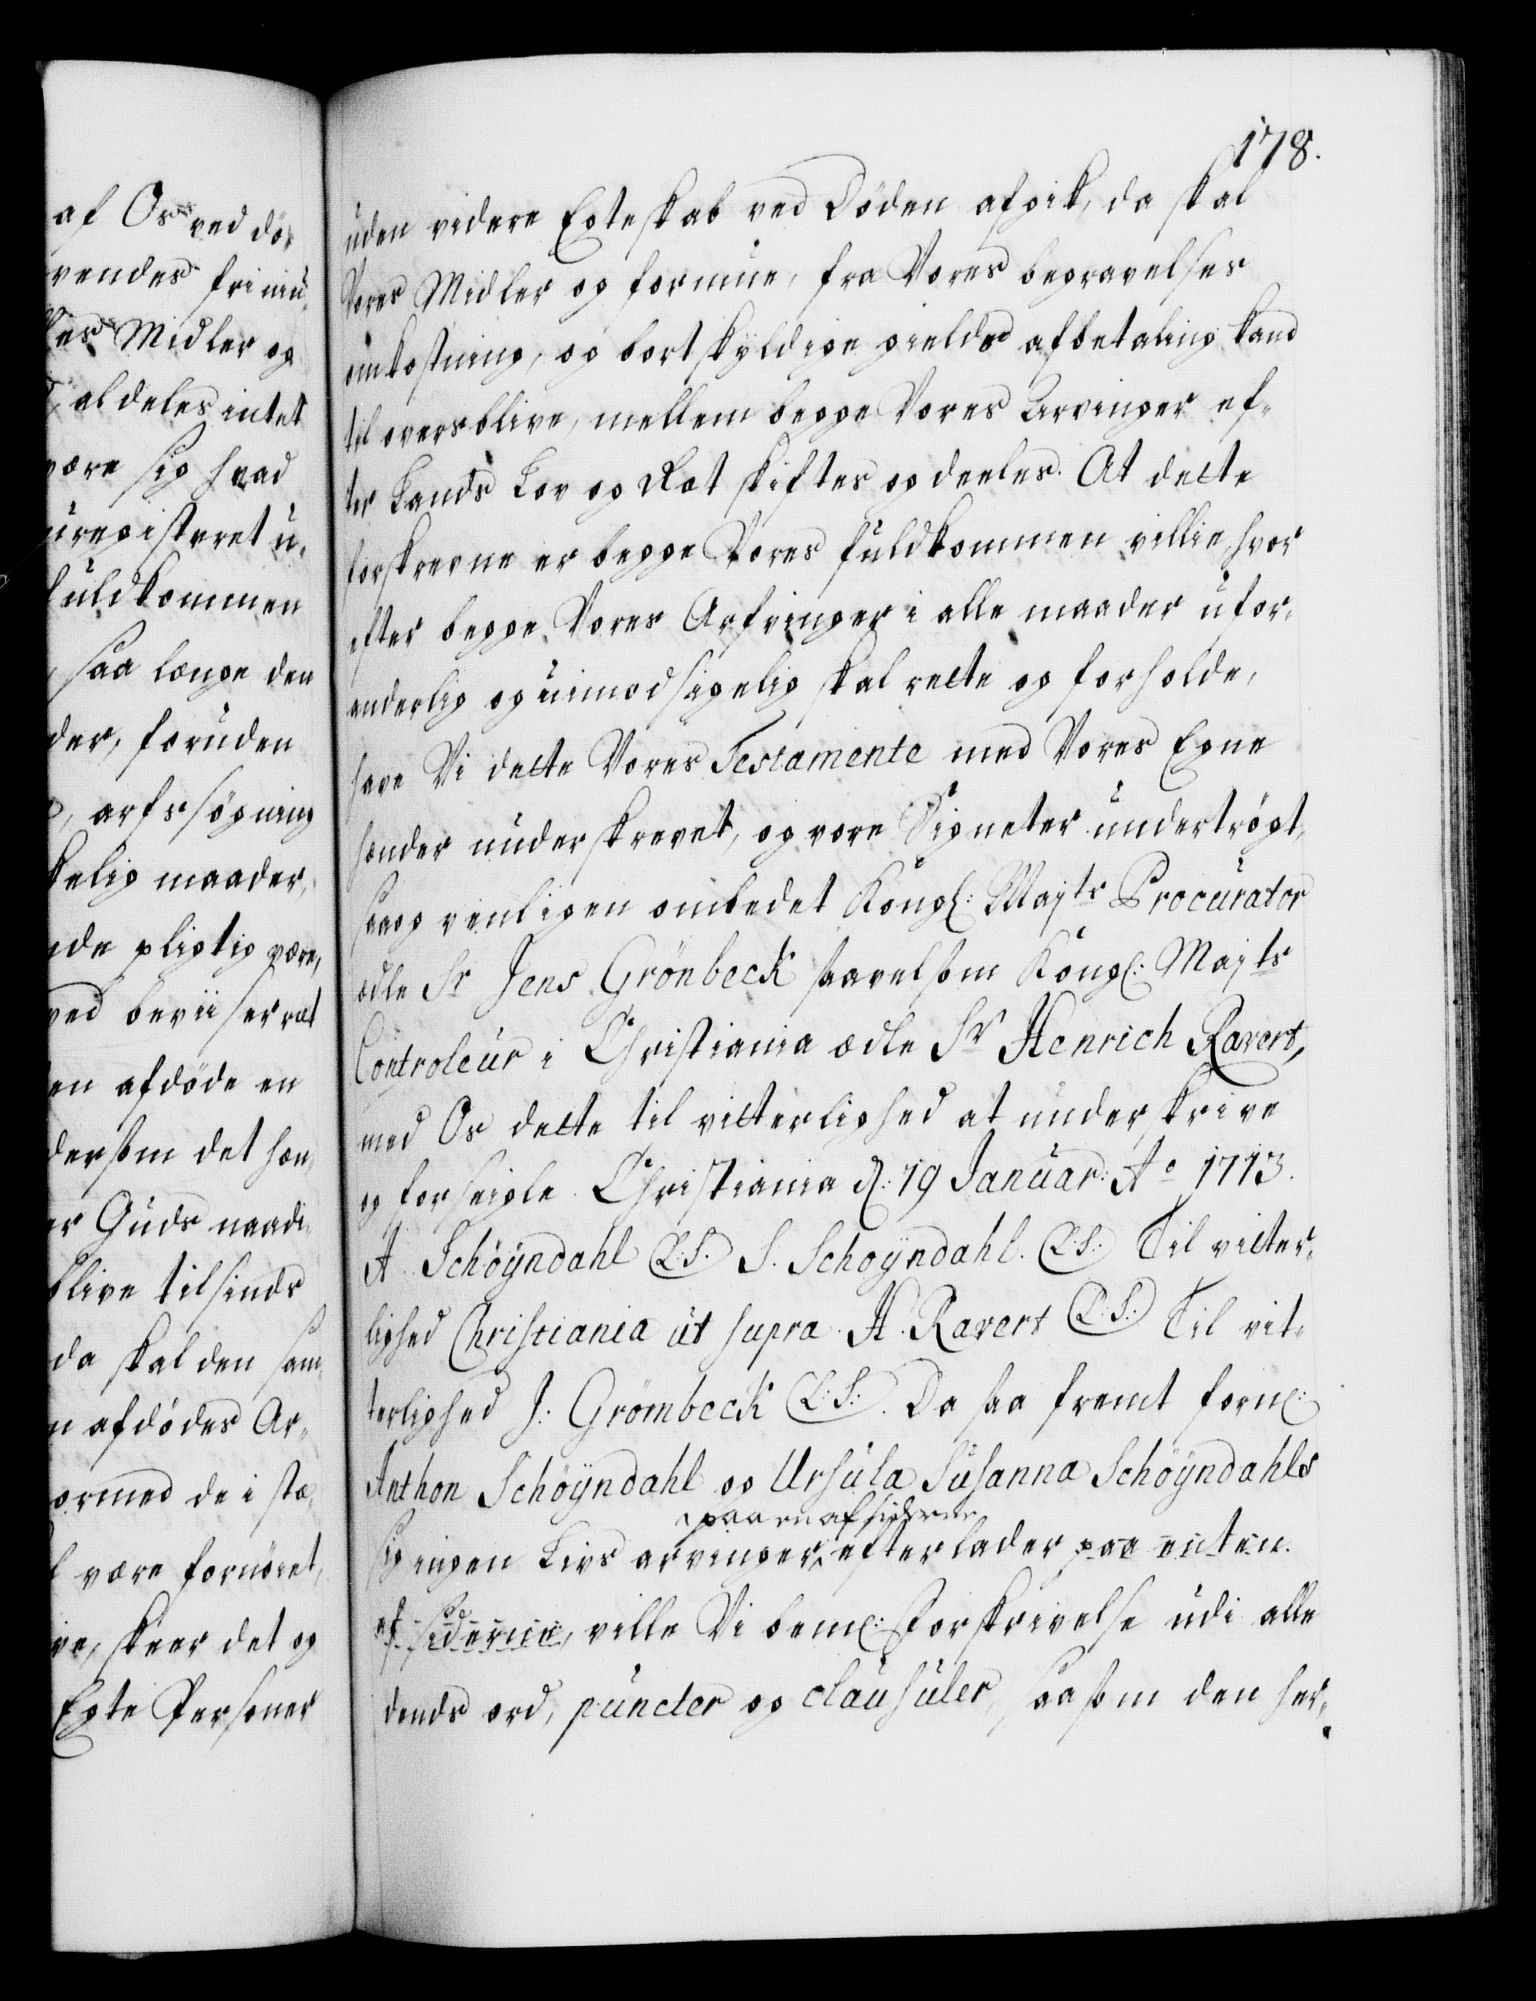 af Os ved dö-
vendes fri uiu-
lles Midler og
aldeles intet
være sig hvad
uregisteret u-
fuldkommen
saa længe den
der, foruden
arfs søgning
kelig maader,
nde pligtig være,
ved beviiser ræt
en afdöde en
dersom det hæn-
er Guds naadi-
blive tilsinds
da skal den sam-
n afdödes Ar-
ormed de i stæ-
l være fornöiet,
ve, skeer det og
Egte Personer
178.
uden videre Egteskab ved Döden afgik, da skal
Vores Midler og formue, fra Vores begravelses
omkostning, og bortskyldige gields afbetaling kand
til overs blive, mellem begge Vores Arvinger ef-
ter Lands Lov og Ræt skiftes og deeles. At dette
forskrevne er begge Vores fuldkommen villie, hvor
efter begge Vores Arfvinger i alle maader ufor-
anderlig og uimodsigelig skal rette og forholde,
have Vi dette Vores Testamente med Vores Egne
hænder underskrevet, og vore Signeter undertrögt,
saa og venligen ombedet Kongl: Maj:ts Procurator
ædle Sr Jens Grönbeck saavelsom Kongl: Maj:ts
Controleur i Christiania ædle Sr Henrich Ravert,
med Os dette til vitterlighed at underskrive
og forseigle. Christiania d: 19 Januar: Ao 1713.
A. Schöÿndahl (L:S:) S. Schoÿndahl. (L:S:) Til vitter-
lighed Christiania ut supra H. Ravert (L:S:) Til vit-
terlighed J: Grömbeck (L:S:). Da saa fremt form:
Anthon Schöÿndahl og Ursula Susanna Schöÿndahls
paa en af siderne
sig ingen Livs arvinger efterlader paa enten
af siderne, ville Vi bem: Forskrivelse udi alle
dends ord, puncter og clausuler, saasom den her-